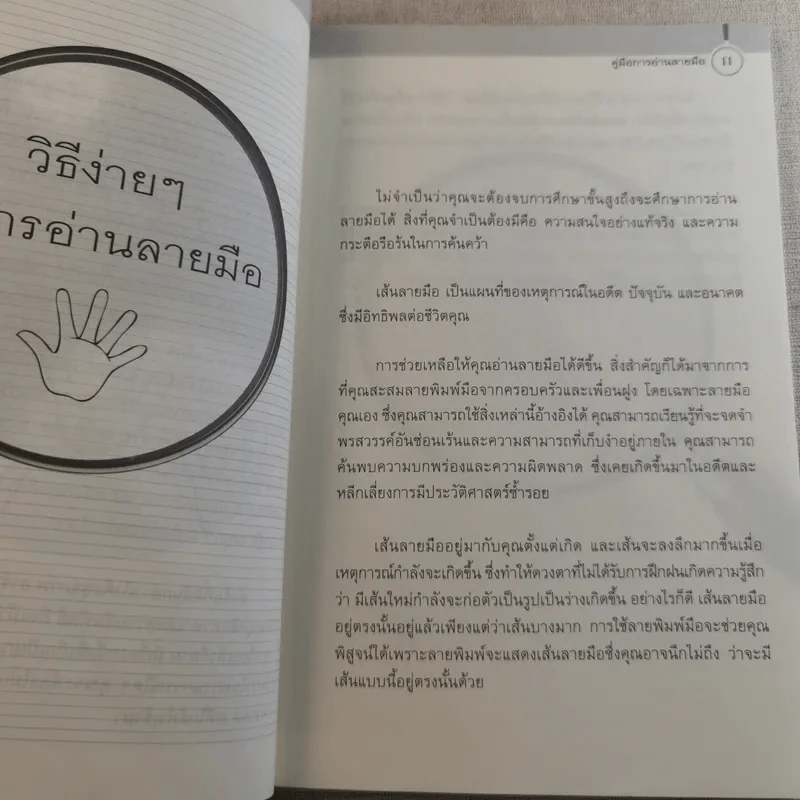 วิธีง่ายๆ
การอ่านลายมือ
คู่มือการอ่านลายมือ 11
ไม่จำเป็นว่าคุณจะต้องจบการศึกษาชั้นสูงถึงจะศึกษาการอ่าน
ลายมือได้ สิ่งที่คุณจำเป็นต้องมีคือ ความสนใจอย่างแท้จริง และความ
กระตือรือร้นในการค้นคว้า
เส้นลายมือ เป็นแผนที่ของเหตุการณ์ในอดีต ปัจจุบัน และอนาคต
ซึ่งมีอิทธิพลต่อชีวิตคุณ
การช่วยเหลือให้คุณอ่านลายมือได้ดีขึ้น สิ่งสำคัญก็ได้มาจากการ
ที่คุณสะสมลายพิมพ์มือจากครอบครัวและเพื่อนฝูง โดยเฉพาะลายมือ
คุณเอง ซึ่งคุณสามารถใช้สิ่งเหล่านี้อ้างอิงได้ คุณสามารถเรียนรู้ที่จะจดจำ
พรสวรรค์อันซ่อนเร้นและความสามารถที่เก็บงำอยู่ภายใน คุณสามารถ
ค้นพบความบกพร่องและความผิดพลาด ซึ่งเคยเกิดขึ้นมาในอดีตและ
หลีกเลี่ยงการมีประวัติศาสตร์ซ้ำรอย
เส้นลายมืออยู่มากับคุณตั้งแต่เกิด และเส้นจะลงลึกมากขึ้นเมื่อ
เหตุการณ์กำลังจะเกิดขึ้น ซึ่งทำให้ดวงตาที่ไม่ได้รับการฝึกฝนเกิดความรู้สึก
ว่า มีเส้นใหม่กำลังจะก่อตัวเป็นรูปเป็นร่างเกิดขึ้น อย่างไรก็ดี เส้นลายมือ
อยู่ตรงนั้นอยู่แล้วเพียงแต่ว่าเส้นบางมาก การใช้ลายพิมพ์มือจะช่วยคุณ
พิสูจน์ได้เพราะลายพิมพ์จะแสดงเส้นลายมือซึ่งคุณอาจนึกไม่ถึง ว่าจะมี
เส้นแบบนี้อยู่ตรงนั้นด้วย